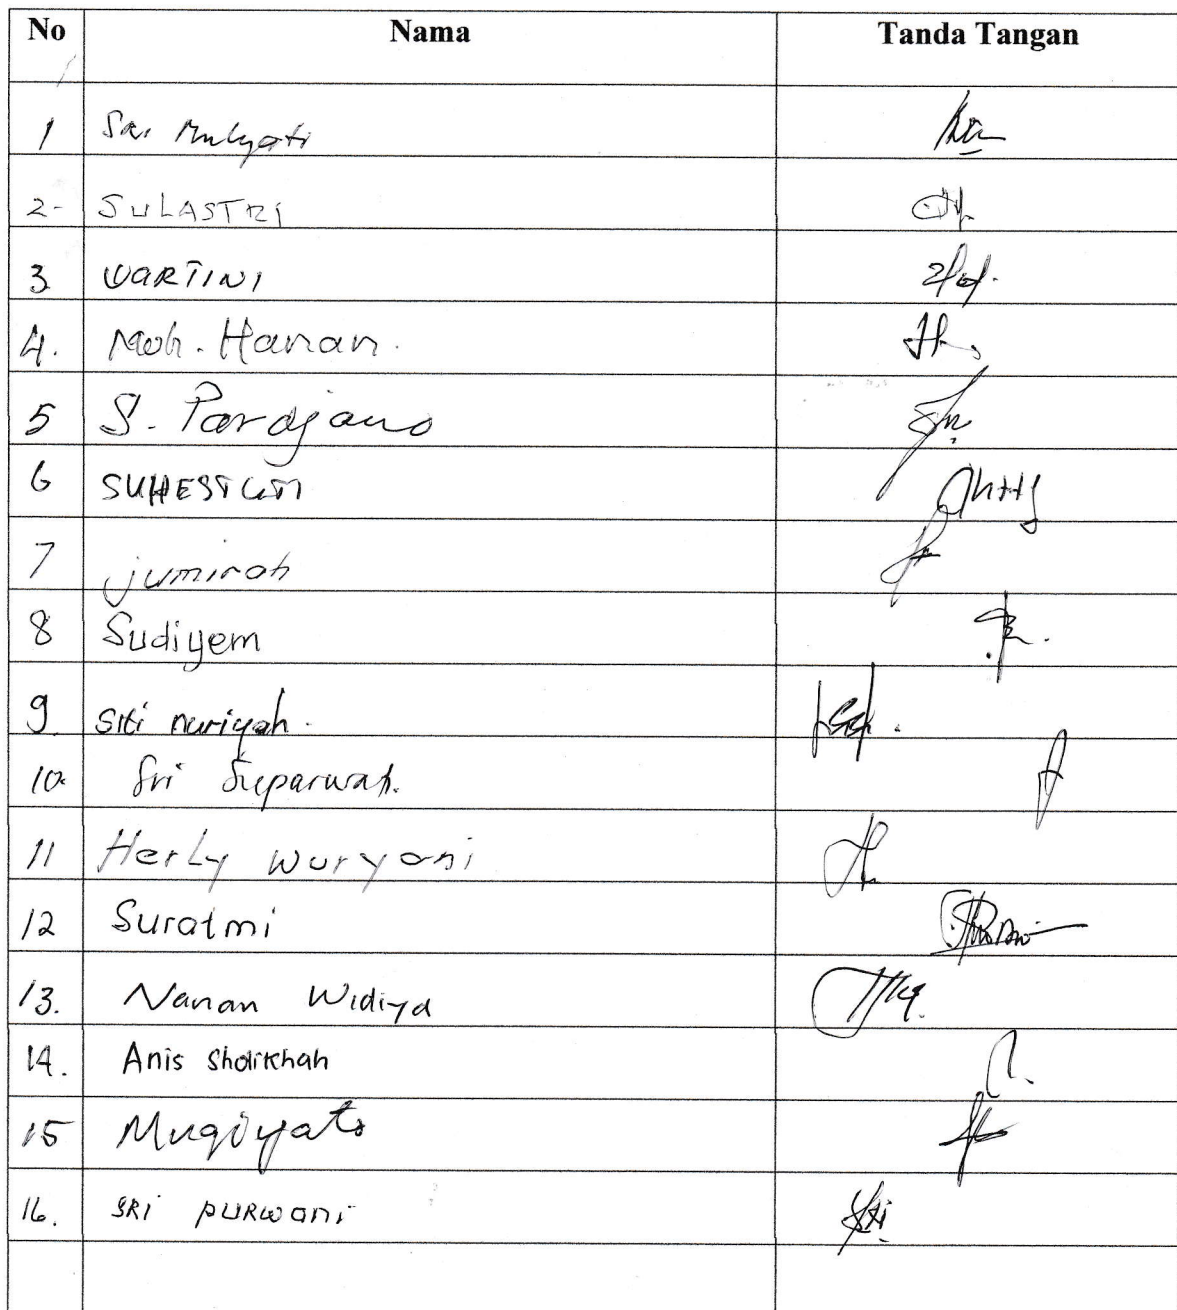 No Nama Tanda Tangan
1 Sri Mulyati
2- SULASTRI
3 WARTINI
4. Moh. Hanan.
5 S. Pardjano
6 SUHESTUTI
7 jumirah
8 Sudiyem
9. Siti nuriyah.
10. Sri Suparwati.
11 Herly Wuryani
12 Suratmi
13. Nanan Widiya
14. Anis Sholikhah
15 Mugiyato
16. SRI PURWANI